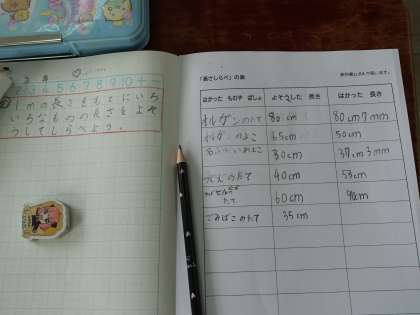 3 4 5 6 7 8 9 10
1mの長さをもとにいろ
いろなものの長さをよそ
うしてしらべよう。
「長さしらべ」の表
はかった ものや ばしょ よそうした 長さ はかった 長さ
オルガンのたて 80cm 80cm7mm
オルガンのよこ 65cm 50cm
30cm 37cm3mm
つくえのたて 40cm 53cm
たて 60cm
ごみばこのたて 35cm